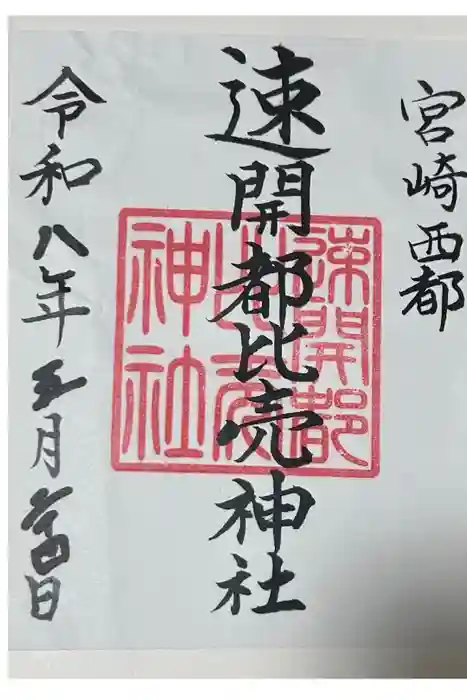 宮崎西都
速開都比売神社
令和八年五月日
速開都
神社